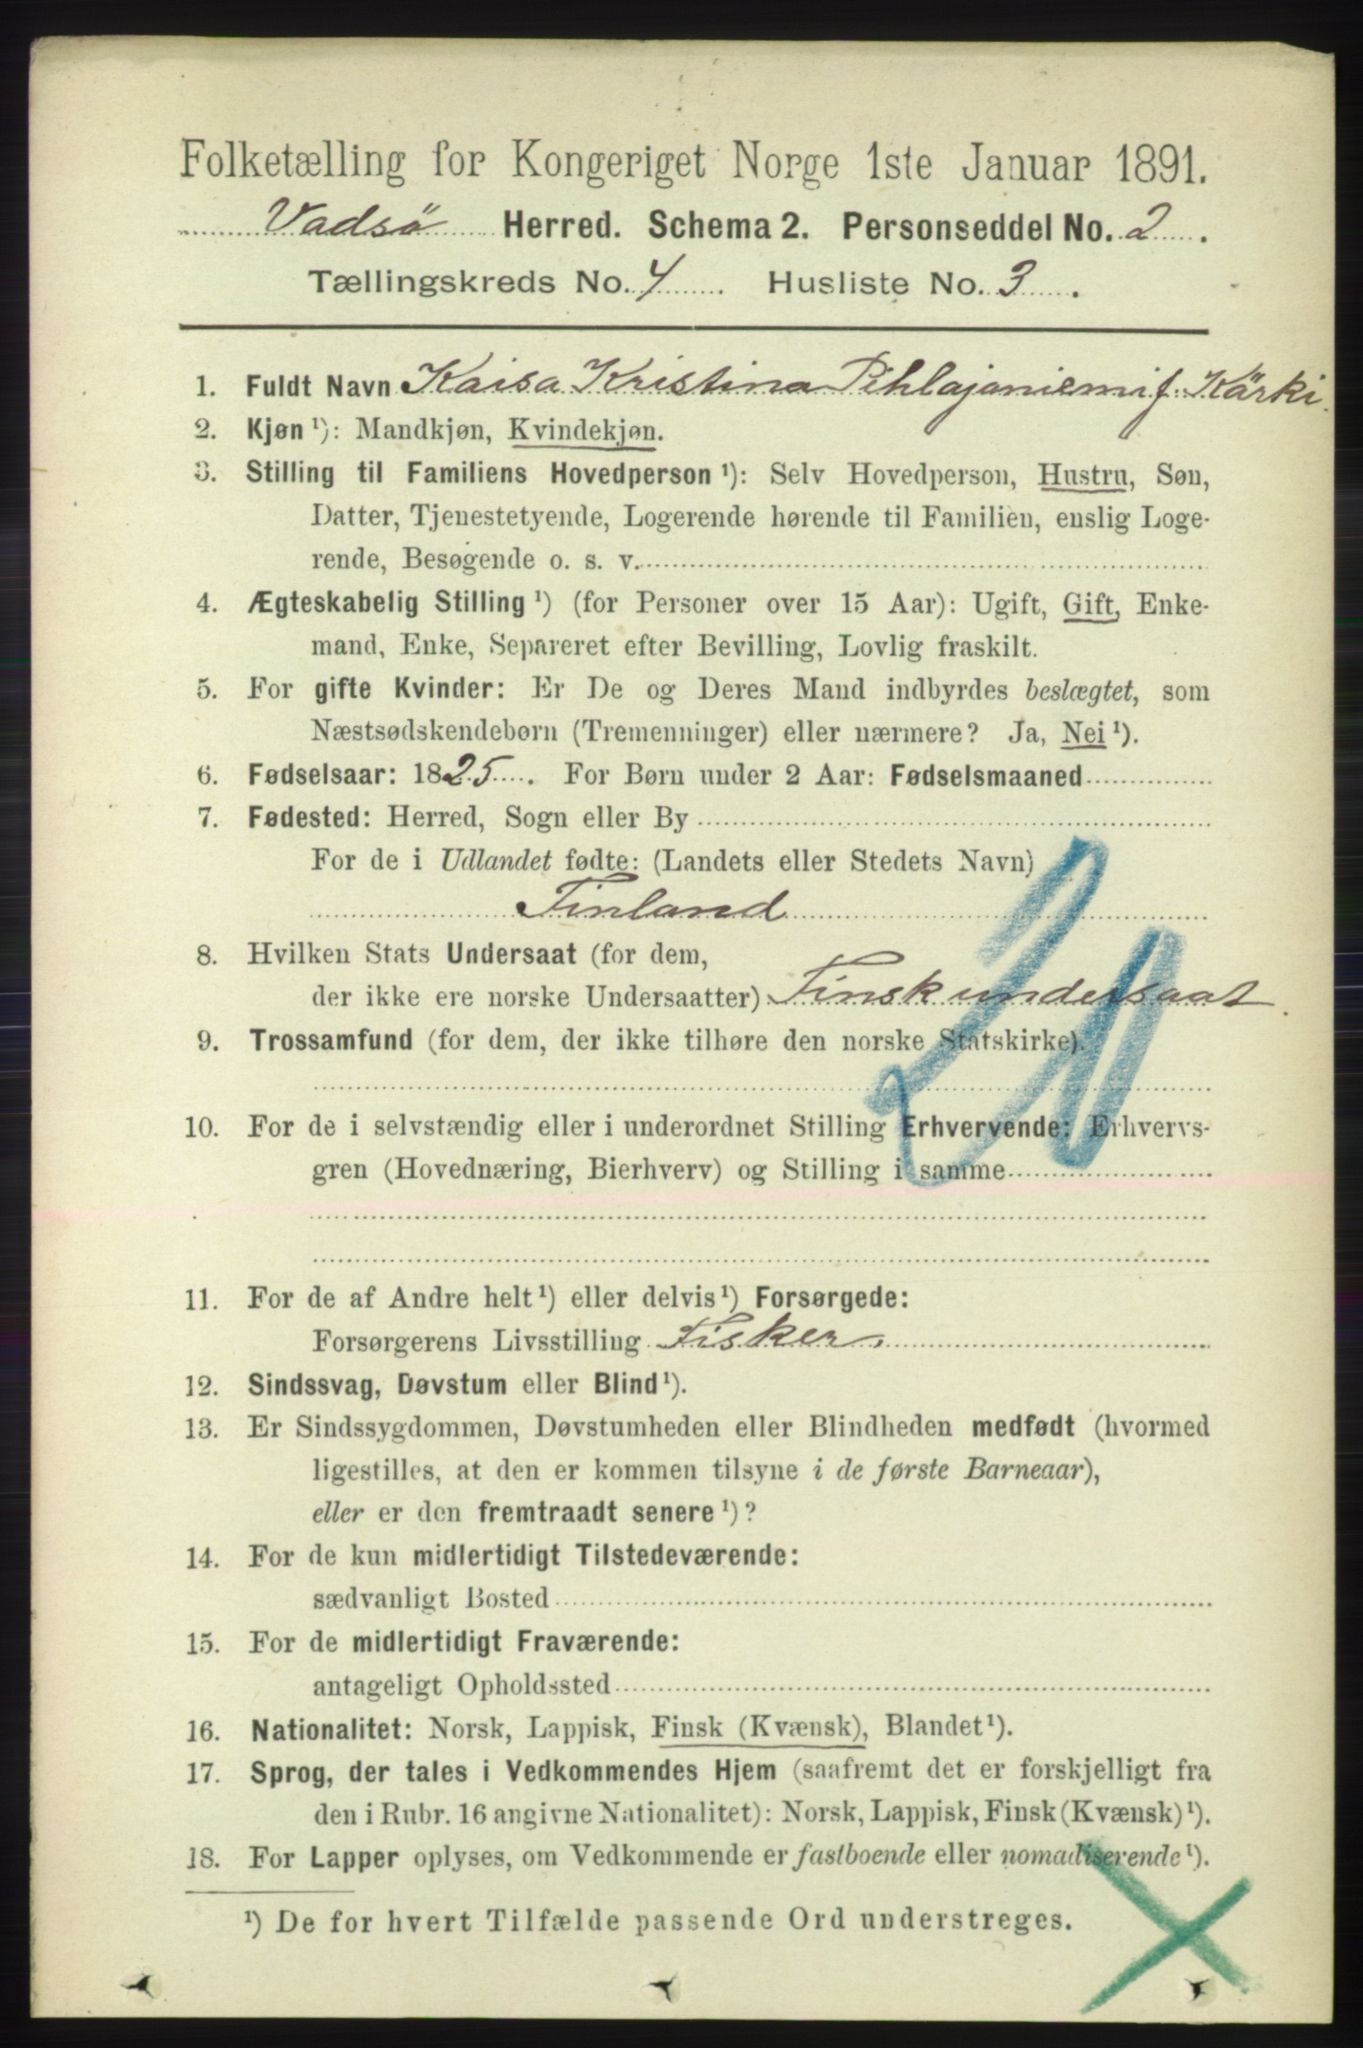 Folketælling for Kongeriget Norge 1ste Januar 1891.
Vadsö Herred. Schema 2. Personseddel No. 2.
Tællingskreds No. 4 Husliste No. 3.
1. Fuldt Navn Kaisa Kristina Pihlajaniemi f. Kärki.
2. Kjøn ¹): Mandkjøn, Kvindekjøn.
3. Stilling til Familiens Hovedperson ¹): Selv Hovedperson, Hustru, Søn,
Datter, Tjenestetyende, Logerende hørende til Familien, enslig Loge-
rende, Besøgende o. s. v.
4. Ægteskabelig Stilling ¹) (for Personer over 15 Aar): Ugift, Gift, Enke-
mand, Enke, Separeret efter Bevilling, Lovlig fraskilt.
5. For gifte Kvinder: Er De og Deres Mand indbyrdes beslægtet, som
Næstsødskendebørn (Tremenninger) eller nærmere? Ja, Nei ¹).
6. Fødselsaar: 1825. For Børn under 2 Aar: Fødselsmaaned
7. Fødested: Herred, Sogn eller By
For de i Udlandet fødte: (Landets eller Stedets Navn)
Finland
8. Hvilken Stats Undersaat (for dem,
der ikke ere norske Undersaatter) Finsk undersaat.
9. Trossamfund (for dem, der ikke tilhøre den norske Statskirke).
10. For de i selvstændig eller i underordnet Stilling Erhvervende: Erhvervs-
gren (Hovednæring, Bierhverv) og Stilling i samme
11. For de af Andre helt ¹) eller delvis ¹) Forsørgede:
Forsørgerens Livsstilling Fisker.
12. Sindssvag, Døvstum eller Blind ¹).
13. Er Sindssygdommen, Døvstumheden eller Blindheden medfødt (hvormed
ligestilles, at den er kommen tilsyne i de første Barneaar),
eller er den fremtraadt senere ¹)?
14. For de kun midlertidigt Tilstedeværende:
sædvanligt Bosted
15. For de midlertidigt Fraværende:
antageligt Opholdssted
16. Nationalitet: Norsk, Lappisk, Finsk (Kvænsk), Blandet ¹).
17. Sprog, der tales i Vedkommendes Hjem (saafremt det er forskjelligt fra
den i Rubr. 16 angivne Nationalitet): Norsk, Lappisk, Finsk (Kvænsk) ¹).
18. For Lapper oplyses, om Vedkommende er fastboende eller nomadiserende ¹).
¹) De for hvert Tilfælde passende Ord understreges.